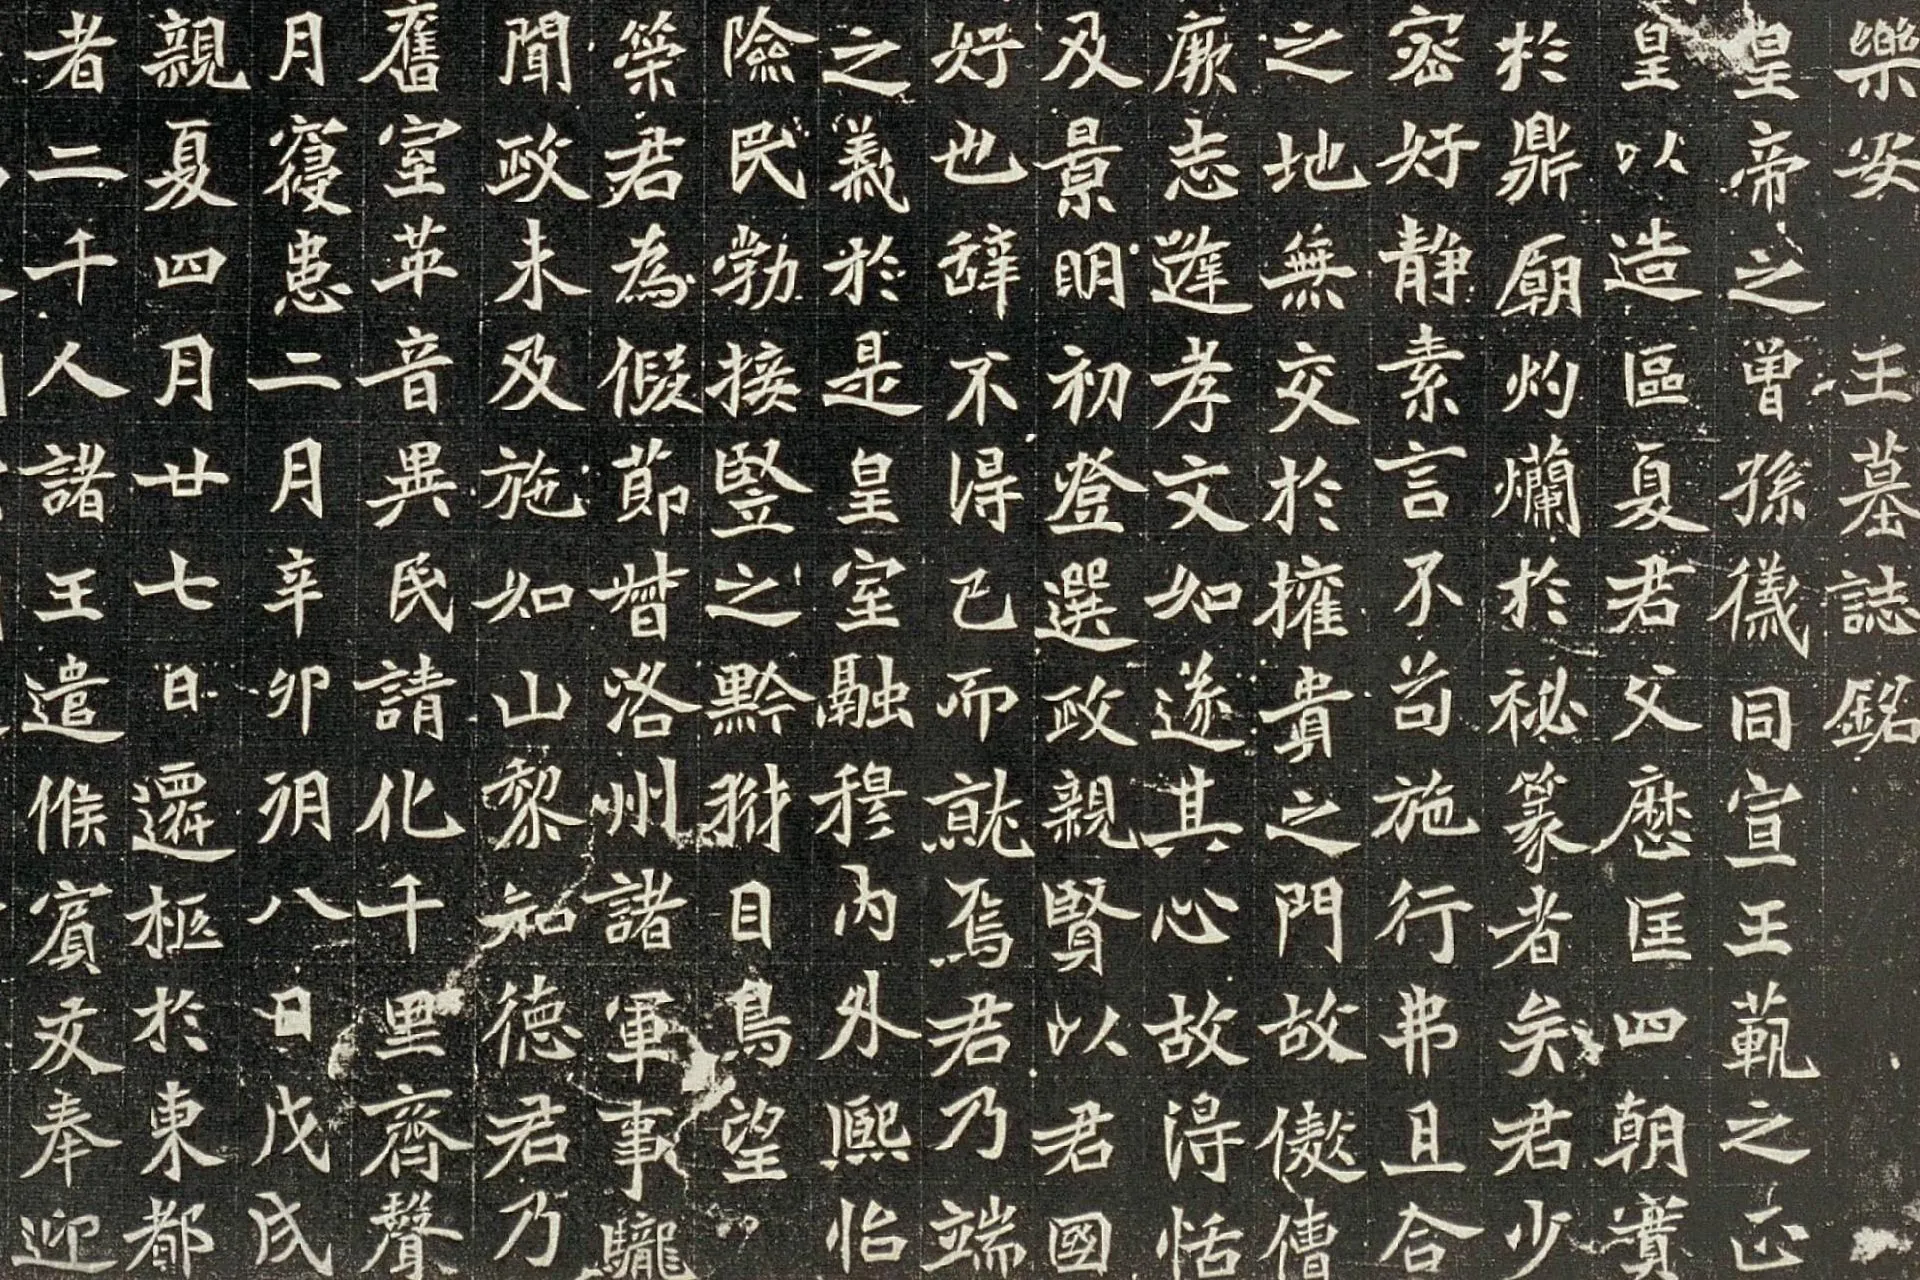 樂安 王墓誌銘
皇帝之曾孫儀同宣王範之正
皇以造區夏君父歷匡四朝寶
於鼎廟灼爛於祕篆者矣君少
密好靜素言不苟施行弗且合
之地無交於擁貴之門故傲
厲志遲孝文如遂其心故得恬
及景明初登選政親賢以君國
好也辭不得已而就焉君乃端
之義於是皇室融穆內外熙怡
險民勃接豎之黔豺目鳥望
榮君為假節督洛州諸軍事
聞政未及施如山黎知德君乃
舊室革音異民請化千里齊聲
月寢患二月辛卯朔八日戊戌
親夏四月廿七日遷柩於東都
者二千人諸王遣候賓友奉迎